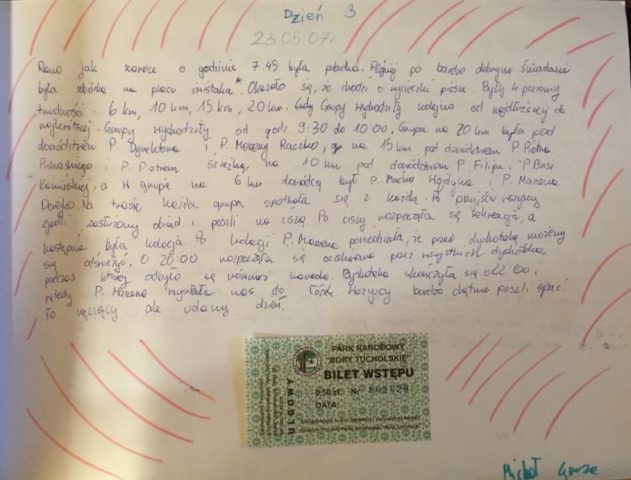 Dzień 3
23.05.07r
Rano jak zawsze o godzinie 7.45 była pobudka. Później po bardzo dobrym śniadaniu
była zbiórka na placu świstaka*. Okazało się, że chodzi o wycieczki piesze. Były 4 poziomy
trudności: 6 km, 10 km, 15 km, 20 km. Gdy Grupy wychodziły kolejno od najdłuższej do
najkrótszej. Grupy wychodziły od godz. 9:30 do 10:00. Grupa na 20 km była pod
dowództwem P. Dyrektora i P. Marzeny Raczko, na 15 km pod dowództwem P. Piotra
i P. Piotrem Ścieżką, na 10 km pod dowództwem P. Filipa i P. Basi
a w grupie na 6 km dowódcą był P. Maciej Wojdyna i P. Marzena
Na trasie każda grupa spotkała się z każdą. Po przyjściu wszyscy
zjedli zasłużony obiad i poszli na ciszę. Po ciszy rozpoczęła się rekreacja, a
następnie była kolacja. Po kolacji P. Marzena powiedziała, że przed dyskoteką możemy
się odświeżyć. O 20:00 rozpoczęła się oczekiwana przez wszystkich dyskoteka,
podczas której odbyło się również karaoke. Dyskoteka skończyła się o 22.00 i
wtedy P. Marzena wysłała nas do łóżek. Wszyscy bardzo chętnie poszli spać.
To męczący ale udany dzień.
PARK NARODOWY
"BORY TUCHOLSKIE"
BILET WSTĘPU
ULGOWY
0.50 zł Nr
DATA
Michał